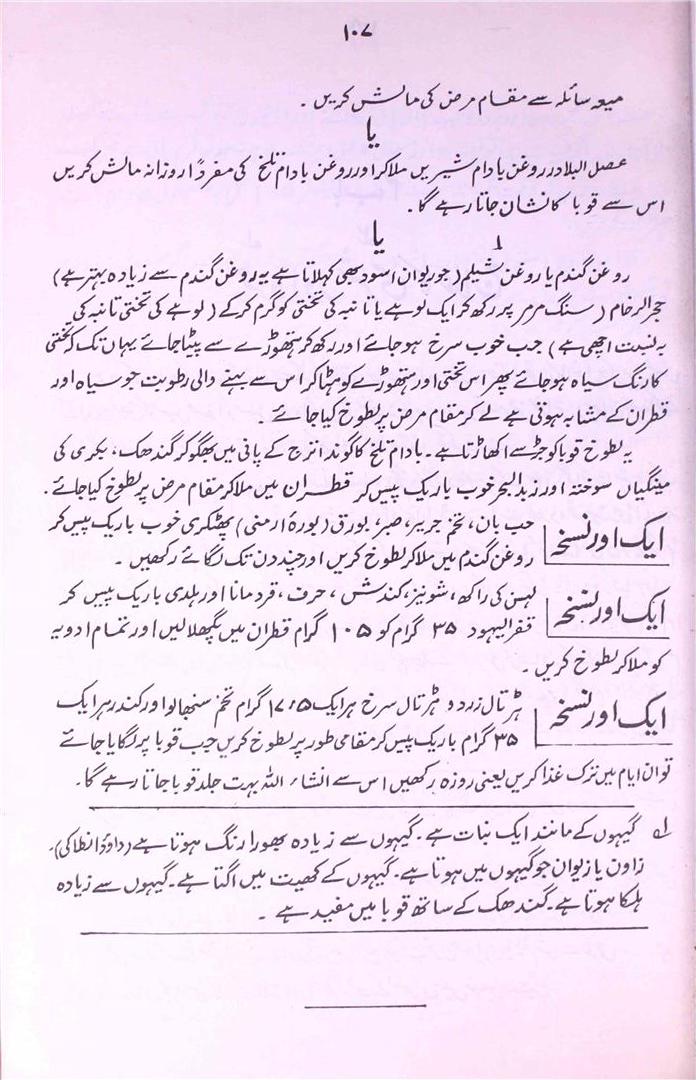 ۱۰۷
میعہ سائلہ سے مقام مرض کی مالش کریں۔
یا
عصل البلادر روغن بادام شیریں ملا کر اور روغن بادام تلخ کی مفرداً روزانہ مالش کریں
اس سے قوبا کا نشان جاتا رہے گا۔
یا ۱
روغن گندم یا روغن شیلم (جو ریوان اسود بھی کہلاتا ہے یہ روغن گندم سے زیادہ بہتر ہے)
حجر الرخام (سنگ مرمر پر رکھ کر ایک لوہے یا تانبہ کی تختی کو گرم کرکے (لوہے کی تختی تانبہ کی
بہ نسبت اچھی ہے) جب خوب سرخ ہو جائے اور رکھ کر ہتھوڑے سے پیٹا جائے یہاں تک کہ تختی
کا رنگ سیاہ ہو جائے پھر اس تختی اور ہتھوڑے کو ہٹا کر اس سے بہنے والی رطوبت جو سیاہ اور
قطران کے مشابہ ہوتی ہے لے کر مقام مرض پر لطوخ کیا جائے۔
یہ لطوخ قوبا کو جڑ سے اکھاڑتا ہے۔ بادام تلخ کا گوند اترج کے پانی میں بھگو کر گندھک، بکری کی
مینگیاں سوختہ اور زبد البحر خوب باریک پیس کر قطران میں ملا کر مقام مرض پر لطوخ کیا جائے۔
ایک اور نسخہ حب بان، تخم جریر، صبر، بورق (بورۂ ارمنی) پھٹکری خوب باریک پیس کر
روغن گندم میں ملا کر لطوخ کریں اور چند دن تک لگائے رکھیں۔
ایک اور نسخہ لہسن کی راکھ، شونیز، کندش، حرف، قردمانا اور ہلدی باریک پیس کر
قفر الیہود ۳۵ گرام کو ۱۰۵ گرام قطران میں پگھلا لیں اور تمام ادویہ
کو ملا کر لطوخ کریں۔
ایک اور نسخہ ہڑتال زرد و ہڑتال سرخ ہر ایک ۱۷،۵ گرام تخم سنبھالو اور کندر ہر ایک
۳۵ گرام باریک پیس کر مقامی طور پر لطوخ کریں جب قوبا پر لگایا جائے
تو ان ایام میں ترک غذا کریں یعنی روزہ رکھیں اس سے انشاء اللہ بہت جلد قوبا جاتا رہے گا۔
۱ے گیہوں کے مانند ایک نبات ہے۔ گیہوں سے زیادہ بھورا رنگ ہوتا ہے (داؤد انطاکی)۔
زاون یا زیوان جو گیہوں میں ہوتا ہے۔ گیہوں کے کھیت میں اگتا ہے۔ گیہوں سے زیادہ
ہلکا ہوتا ہے۔ گندھک کے ساتھ قوبا میں مفید ہے۔